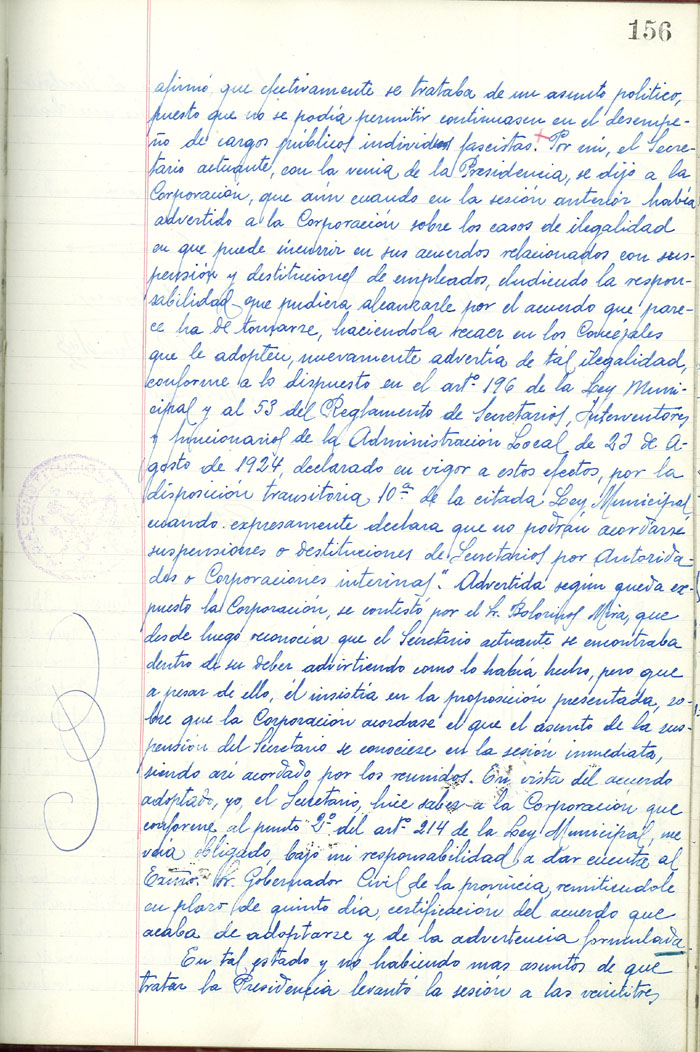 156
afirmó que efectivamente se trataba de un asunto politico,
puesto que no se podía permitir continuasen en el desempe-
ño de cargos públicos individuos fascistas. Por mi, el Secre-
tario actuante, con la venia de la Presidencia, se dijo a la
Corporación, que aún cuando en la sesión anterior había
advertido a la Corporación sobre los casos de ilegalidad
en que puede incurrir en sus acuerdos relacionados con sus-
pensión y destituciones de empleados, eludiendo la respon-
sabilidad que pudiera alcanzarle por el acuerdo que pare-
ce ha de tomarse, haciendola recaer en los Concejales
que le adopten, nuevamente advertia de tal ilegalidad,
conforme a lo dispuesto en el artº 196 de la Ley Muni-
cipal y al 53 del Reglamento de Secretarios, Interventores
y funcionarios de la Administracion Local de 23 de A-
gosto de 1924, declarado en vigor a estos efectos, por la
disposición transitoria 10ª de la citada Ley Municipal
cuando expresamente declara que no podrán acordarse
suspensiones o destituciones de Secretarios por Autorida-
des o Corporaciones interinas". Advertida según queda ex-
puesto la Corporación, se contestó por el Sr. Bolorinos Mira, que
desde luego reconocía que el Secretario actuante se encontraba
dentro de su deber advirtiendo como lo había hecho, pero que
a pesar de ello, él insistía en la proposición presentada, so-
bre que la Corporación acordase el que el asunto de la sus-
pensión del Secretario se conociese en la sesión inmediata,
siendo así acordado por los reunidos. En vista del acuerdo
adoptado, yo, el Secretario, hice saber a la Corporación que
conforme al punto 2º del artº 214 de la Ley Municipal, me
veía obligado, bajo mi responsabilidad a dar cuenta al
Exmo. Sr. Gobernador Civil de la provincia, remitiendole
en plazo de quinto día, certificación del acuerdo que
acaba de adoptarse y de la advertencia formulada
En tal estado y no habiendo mas asuntos de que
tratar la Presidencia levantó la sesión a las veintitres